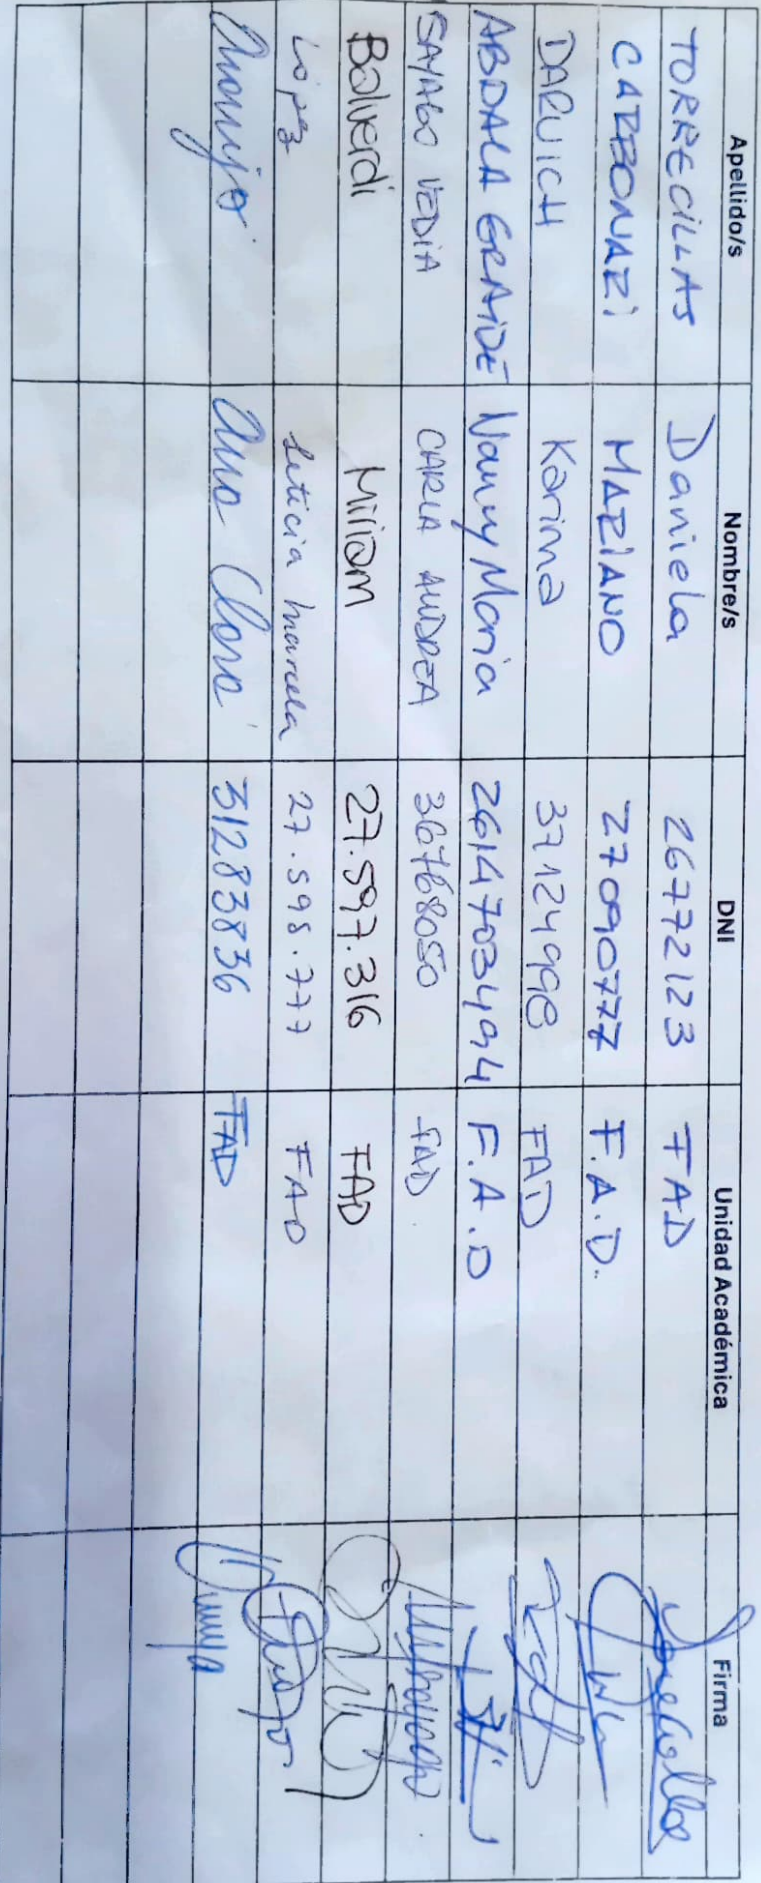 Apellido/s Nombre/s DNI Unidad Académica Firma
TORRECILLAS Daniela 26772123 FAD
CARBONARI MARIANO 27090777 F.A.D.
DARUICH Karina 37124998 FAD
ABDALA GRAIDE Nanny Maria 2614703494 F.A.D
SAYAGO VEDIA CARLA ANDREA 36768050 FAD.
Balverdi Miriam 27.597.316 FAD
López Leticia Marcela 27.598.777 FAD
Ana Clara 31283836 FAD